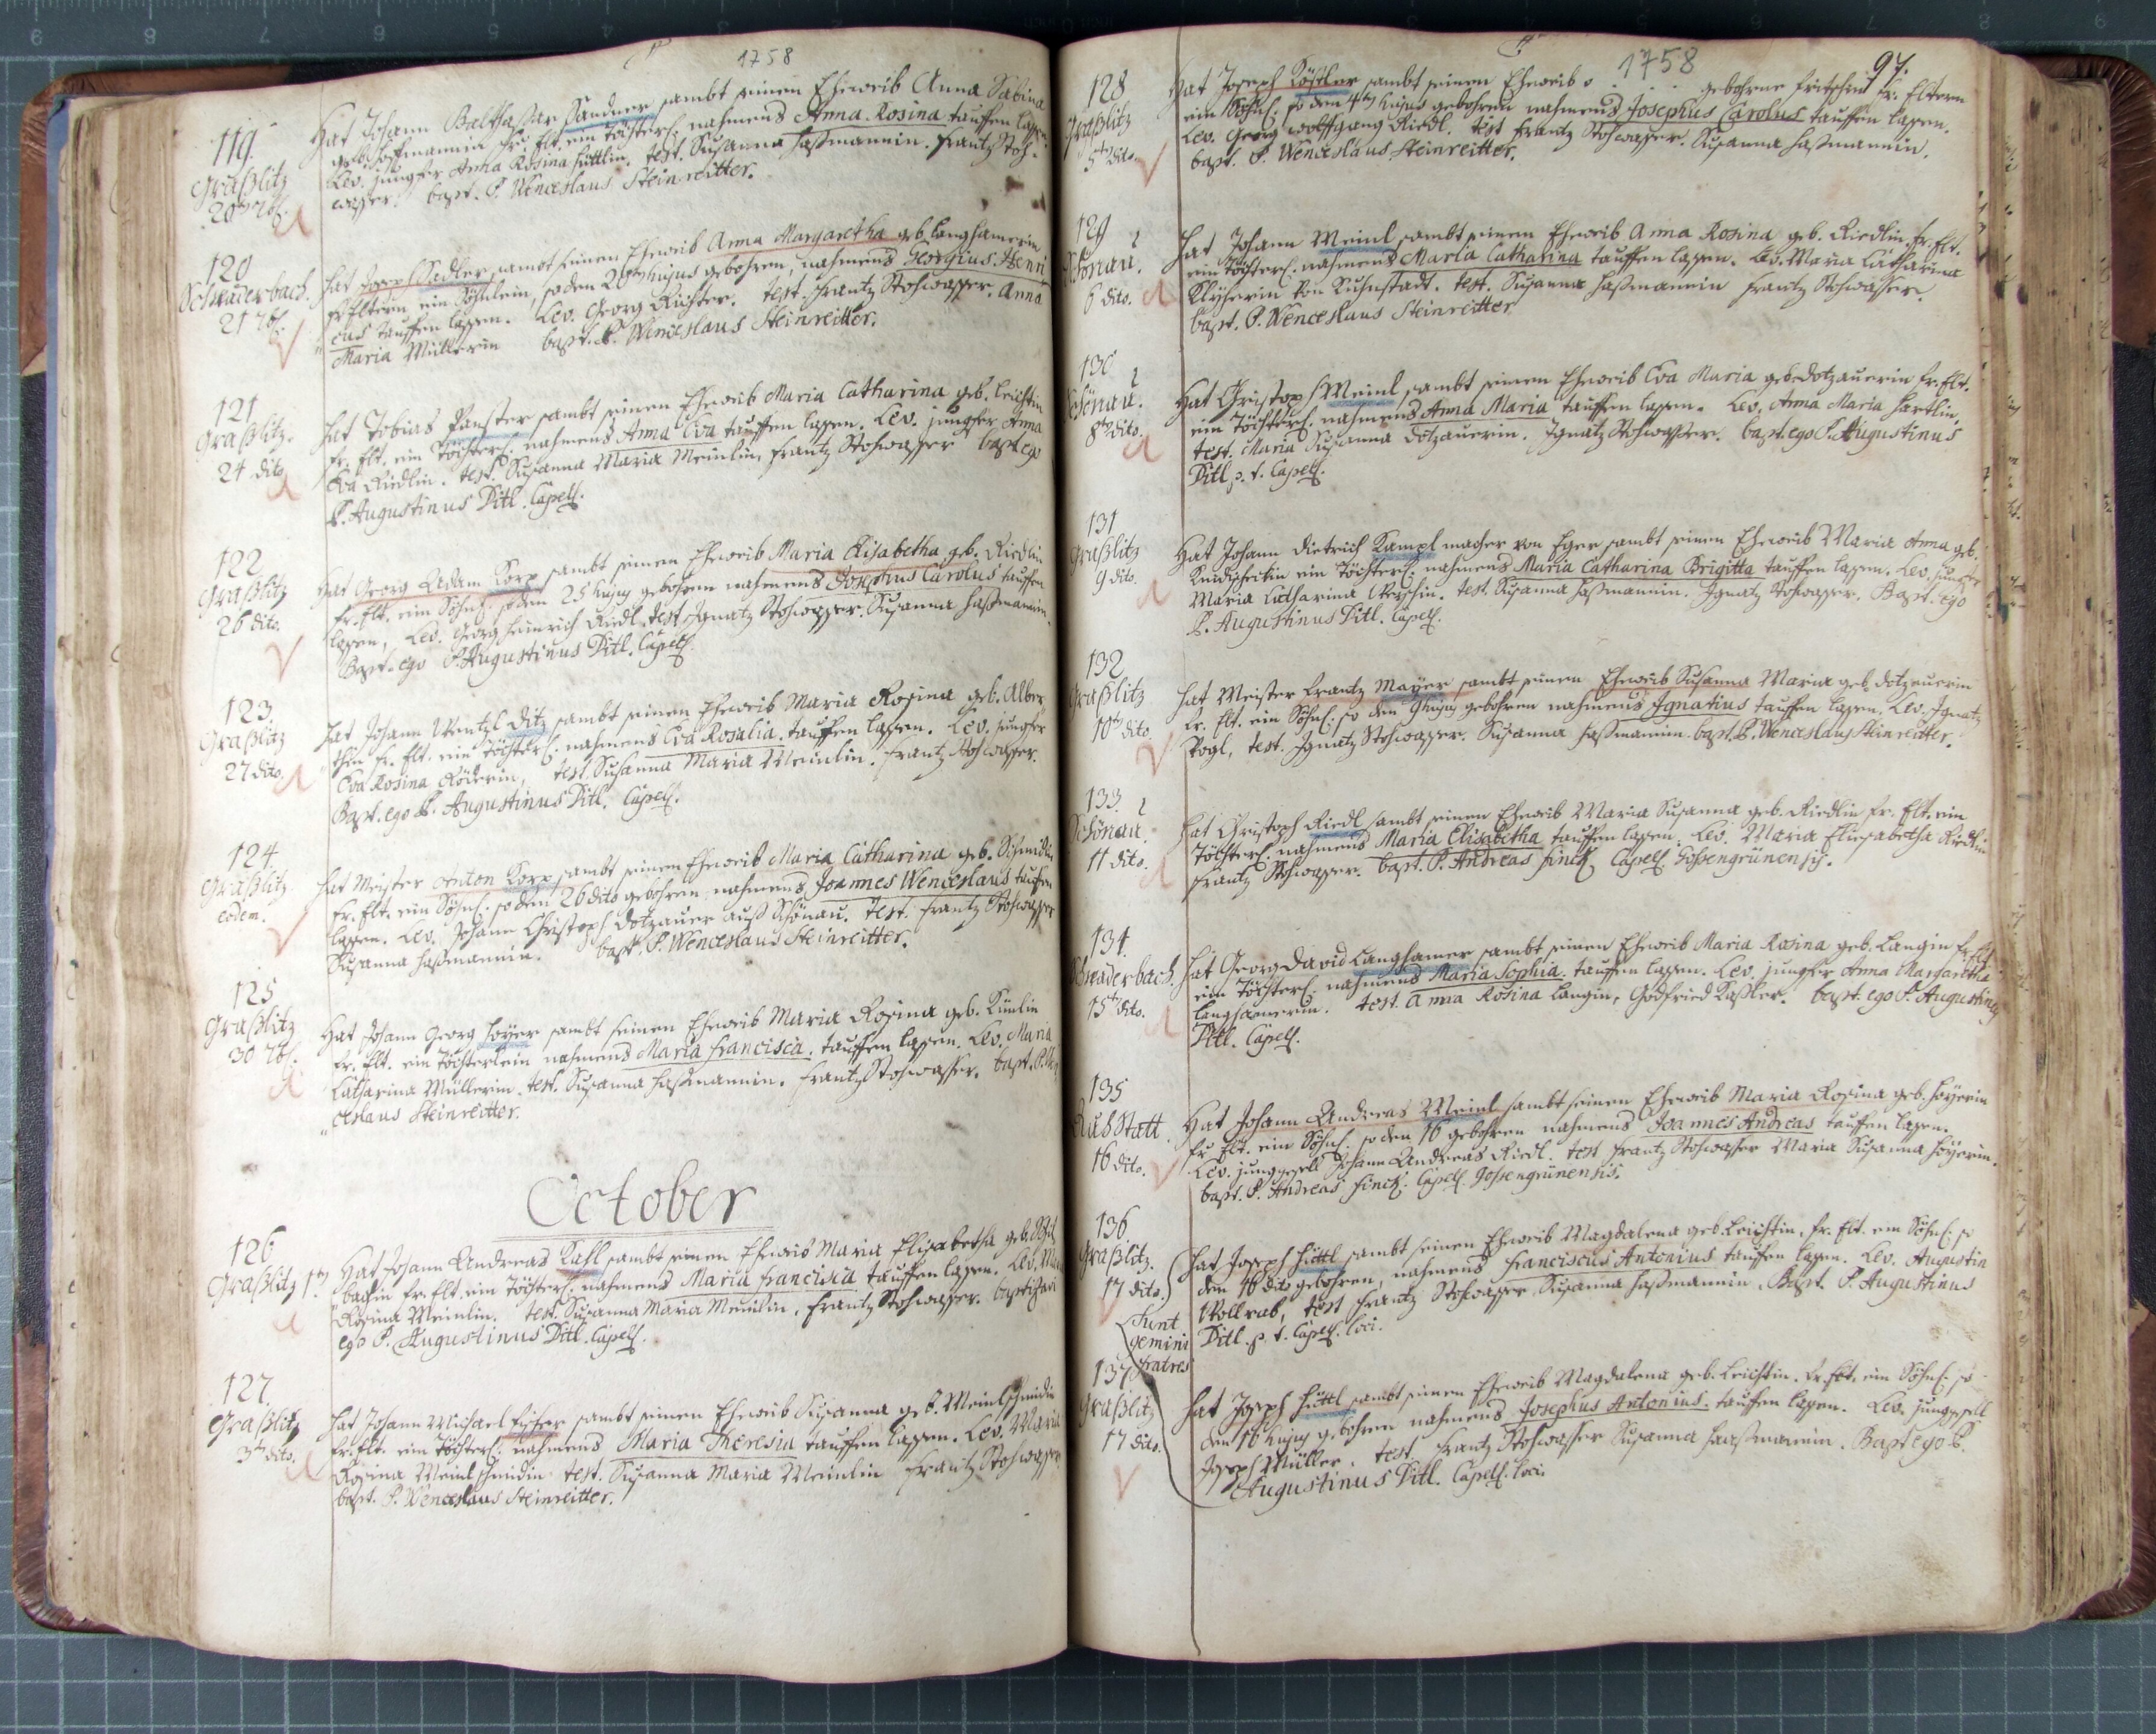 1758
119.
Graßlitz
20 7br.
Hat Johann Balthasar Sandner sambt seinen Eheweib Anna Sabina
geb. Hoffmannin fr. Elt. ein Töchterl. nahmens Anna Rosina tauffen lassen.
Lev. Jungfer Anna Rosina Hüttlin. test. Susanna Haßmannin. Frantz Stoh-
wasser. bapt. P. Wenceslaus Steinreitter.
120
Schwaderbach.
21 7br.
Hat Joseph Sadler sambt seinen Eheweib Anna Margaretha geb. Langhamerin
fr. Eltern ein Söhnlein, so den 20ten hujus gebohren, nahmens Georgius Henri
cus tauffen lassen. Lev. Georg Richter. test. Frantz Stohwasser. Anna
Maria Müllerin bapt. P. Wenceslaus Steinreitter.
121
Graßlitz.
24 dito.
Hat Tobias Panster sambt seinen Eheweib Maria Catharina geb. Leichtin
fr. Elt. ein Töchterl. nahmens Anna Eva tauffen lassen. Lev. Jungfer Anna
Eva Riedlin. test. Susanna Maria Meinlin, Frantz Stohwasser bapt. ego
P. Augustinus Ditl. Capell.
122
Graßlitz
26 dito.
Hat Georg Adam Korp sambt seinen Eheweib Maria Elisabetha geb. Riedlin
fr. Elt. ein Söhnl. so den 25 hujus gebohren nahmens Josephus Carolus tauffen
lassen, Lev. Georg Heinrich Riedl, test. Ignatz Stohwasser. Susanna Haßmannin.
Bapt. ego P. Augustinus Ditl. Capell.
123.
Graßlitz
27 dito.
Hat Johann Wentzl Ditz sambt seinen Eheweib Maria Rosina geb. Alber
thin fr. Elt. ein Töchterl. nahmens Eva Rosalia tauffen lassen. Lev. Jungfer
Eva Rosina Röderin, test. Susanna Maria Meinlin. Frantz Stohwasser.
Bapt. ego P. Augustinus Ditl. Capell.
124.
Graßlitz
eodem.
Hat Meister Anton Korp sambt seinen Eheweib Maria Catharina geb. Schmidin
fr. Elt. ein Söhnl. so den 26 dito gebohren, nahmens Joannes Wenceslaus tauffen
lassen. Lev. Johann Christoph Dotzauer auß Schönau. Test. Frantz Stohwasser
Susanna Haßmannin. bapt. P. Wenceslaus Steinreitter.
125
Graßlitz
30 7br.
Hat Johann Georg Hoyer sambt seinen Eheweib Maria Rosina geb.
fr. Elt. ein Töchterlein nahmens Maria Francisca tauffen lassen. Lev. Maria
Catharina Müllerin. test. Susanna Haßmannin. Frantz Stohwasser. bapt. P. Wen
ceslaus Steinreitter.
October
126
Graßlitz 1ten
Hat Johann Andreas Kahl sambt seinen Eheweib Maria Elisabetha geb.
bachin fr. Elt. ein Töchterl. nahmens Maria Francisca tauffen lassen. Lev.
Rosina Meinlin. test. Susanna Maria Meinlin, Frantz Stohwasser. baptizavi
ego P. Augustinus Ditl. Capell.
127
Graßlitz
3ten dito.
Hat Johann Michael Fischer sambt seinen Eheweib Susanna geb. Meinlschmidin
fr. Elt. ein Töchterl. nahmens Maria Theresia tauffen lassen. Lev. Maria
Rosina Meinlschmidin test. Susanna Maria Meinlin Frantz Stohwasser
bapt. P. Wenceslaus Steinreitter.
1758
97.
128
Graßlitz
5ten dito.
Hat Joseph Köstler sambt seinen Eheweib . . . gebohrne Fritschin fr. Eltern
ein Söhnl. so den 4ten hujus gebohren nahmens Josephus Carolus tauffen lassen.
Lev. Georg Wolffgang Riedl. test Frantz Stohwasser. Susanna Haßmannin.
bapt. P. Wenceslaus Steinreitter.
129
Schönau.
6 dito.
Hat Johann Meinl sambt seinen Eheweib Anna Rosina geb. Riedlin fr. Elt.
ein Töchterl. nahmens Maria Catharina tauffen lassen. Lev. Maria Catharina
von Kuhnstadt. test. Susanna Haßmannin Frantz Stohwasser.
bapt. P. Wenceslaus Steinreitter
130
Schönau.
8ten dito.
Hat Christoph Meinl sambt seinen Eheweib Eva Maria geb. Dotzauerin fr. Elt.
ein Töchterl. nahmens Anna Maria tauffen lassen. Lev. Anna Maria Hartlin.
test. Maria Susanna Dotzauerin. Ignatz Stohwasser. bapt. ego P. Augustinus
Ditl p. t. Capell.
131
Graßlitz
9 dito.
Hat Johann Dietrich Kampl macher von Eger sambt seinen Eheweib Maria Anna geb.
ein Töchterl. nahmens Maria Catharina Brigitta tauffen lassen. Lev. Jungfer
Maria Catharina. test. Susanna Haßmannin. Ignatz Stohwasser. Bapt. ego
P. Augustinus Ditl. Capell.
132
Graßlitz
10ten dito.
Hat Meister Frantz Mayer sambt seinen Eheweib Susanna Maria geb. Dotzauerin
fr. Elt. ein Söhnl. so den 9 hujus gebohren nahmens Ignatius tauffen lassen. Lev. Ignatz
Vogl, test. Ignatz Stohwasser. Susanna Haßmannin. bapt. P. Wenceslaus Steinreitter.
133.
Schönau.
11 dito.
Hat Christoph Riedl sambt seinen Eheweib Maria Susanna geb. Riedlin fr. Elt. ein
Töchterl. nahmens Maria Elisabetha tauffen lassen. Lev. Maria Eliesabetha Riedlin
Frantz Stohwasser. bapt. P. Andreas Finck Capell. Gossengrünensis.
134.
Schwaderbach.
15ten dito.
Hat Georg David Langhamer sambt seinen Eheweib Maria Rosina geb. Langin fr. Elt.
ein Töchterl. nahmens Maria Sophia tauffen lassen. Lev. Jungfer Anna Margaretha
Langhamerin. test. Anna Rosina Langin, Godfried Kaßler. bapt. ego P. Augustinus
Ditl. Capell.
135
RuhStatt
16 dito.
Hat Johann Andreas Meinl sambt seinen Eheweib Maria Rosina geb. Höyerin
fr. Elt. ein Söhnl. so den 16 gebohren nahmens Joannes Andreas tauffen lassen.
Lev. Junggesell Johann Andreas Riedl. test Frantz Stohwasser Maria Susanna Höyerin.
bapt. P. Andreas Finck. Capell. Gossengrünensis.
136
Graßlitz.
17 dito.
Hat Joseph Hüttl sambt seinen Eheweib Magdalena geb. Leichtin, fr. Elt. ein Söhnl. so
den 16 dito gebohren, nahmens Franciscus Antonius tauffen lassen. Lev. Augustin
Vollrab, test Frantz Stohwasser Susanna Haßmannin. Bapt. P. Augustinus
Ditl. p. t. Capell. loci.
Sunt
gemini
fratres
137
Graßlitz
17 dito.
Hat Joseph Hüttl sambt seinen Eheweib Magdalena geb. Leichtin. fr. Elt. ein Söhnl. so
den 16 hujus gebohren nahmens Josephus Antonius tauffen lassen. Lev. Junggsell
Joseph Müller. test. Frantz Stohwasser Susanna Haaßmannin. Bapt ego P.
Augustinus Ditl. Capell. loci.